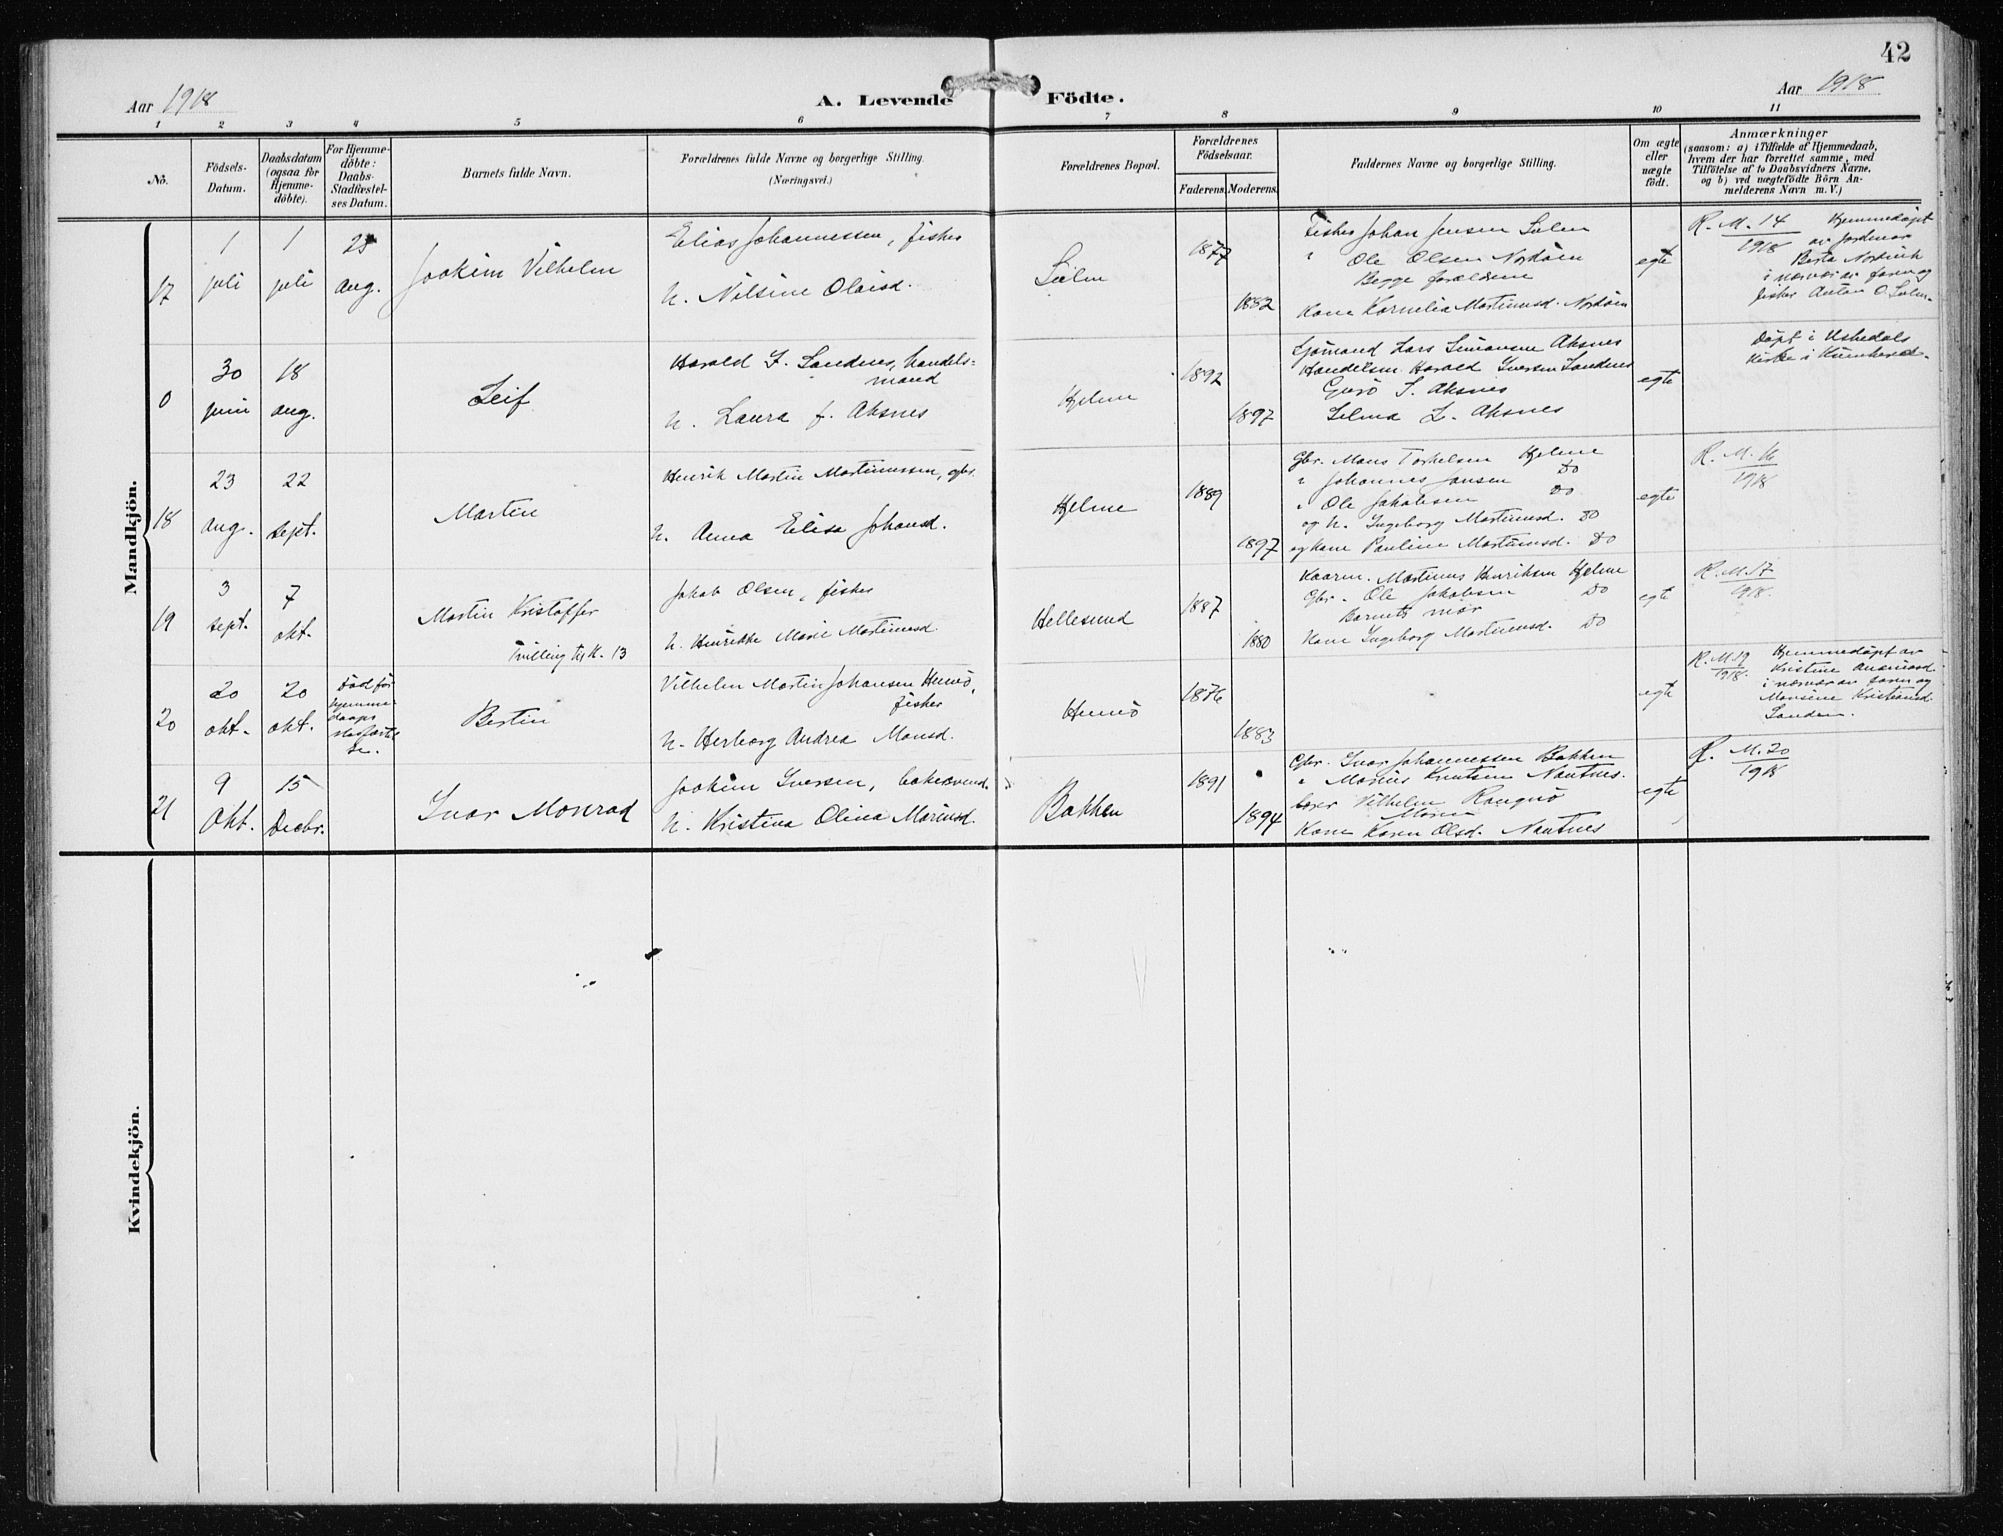 42
Aar 1918
A. Levende Födte.
Aar 1918
1 2 3 4 5 6 7 8 9 10 11
No.
Födsels-
Datum.
Daabsdatum
(ogsaa för
Hjemme-
döbte).
For Hjemme-
döbte:
Daabs-
Stadfæstel-
ses Datum.
Barnets fulde Navn.
Forældrenes fulde Navne og borgerlige Stilling.
(Næringsvei.)
Forældrenes Bopæl.
Forældrenes
Födselsaar.
Faderens. Moderens.
Faddernes Navne og borgerlige Stilling.
Om ægte
eller
uægte
födt.
Anmærkninger
(saasom: a) i Tilfælde af Hjemmedaab,
hvem der har forrettet samme, med
Tilföielse af to Daabsvidners Navne,
og b) ved uægtefödte Börn An-
melderens Navn m. V.)
Mandkjön.
17
1
juli
1
juli
25
aug.
Joakim Vilhelm
Elias Johannessen, fisker
h. Nilsine Olaisd.
Solm
1877
1882
Fisker Johan Jensen Solm
" Ole Olsen Nordöen
Begge forældrene
Kone Kornelia Martinusd. Nordöen
egte
R. M. 14
1918
Hjemmedöpt
av jordmor
Berta Nordvik
i nærvær av faren og
fisker Anton O. Solm.
0
30
juni
18
aug.
Leif
Harald I. Sandnes, handels-
mand
h. Laura f. Aksnes
Hjelme
1892
1897
Sjömand Lars Simonsen Aksnes
Handelsm. Harald Iversen Sandnes
Guro S. Aksnes
Selma L. Aksnes
egte
Döpt i Uskedals
kirke i Kvinherad.
18
23
aug.
22
sept.
Martin
Henrik Martin Martinussen, gbr.
h. Anna Elisa Johansd.
Hjelme
1889
1897
Gbr. Mons Torkelsen Hjelme
" Johannes Jansen Do
" Ole Jakobsen Do
og h. Ingeborg Martinusd. Do
og kone Pauline Martinusd. Do
egte
R. M. 16
1918
19
3
sept.
7
okt.
Martin Kristoffer
Tvilling til K. 13
Jakob Olsen, fisker
h. Henrikke Marie Martinusd.
Hellesund
1887
1880
Kaarm. Martinus Henriksen Hjelme
Gbr. Ole Jakobsen Do
Barnets mor
Kone Ingeborg Martinusd. Do
egte
R. M. 17
1918.
20
20
okt.
20
okt.
Död för
hjemme-
daaps
stadfæstel
se.
Bertin
Vilhelm Martin Johansen Hernö,
fisker
h. Herborg Andrea Monsd.
Hernö
1876
1883
egte
R. M. 19
1918.
Hjemmedöpt av
Kristine Ananiasd.
i nærvær av faren og
Monsine Kristiansd.
Sanden.
21
9
Okt.
15
Decbr.
Ivar Monrad
Joakim Iversen, baker
h. Kristina Olina Mariusd.
Bakken
1891
1894
Gbr. Ivar Johannessen Bakken
" Marius Knutsen Nautnes.
Lærer Vilhelm Rongnö
Moren
Kone Karen Olsd. Nautnes
egte
R. M. 20
1918
Kvindekjön.